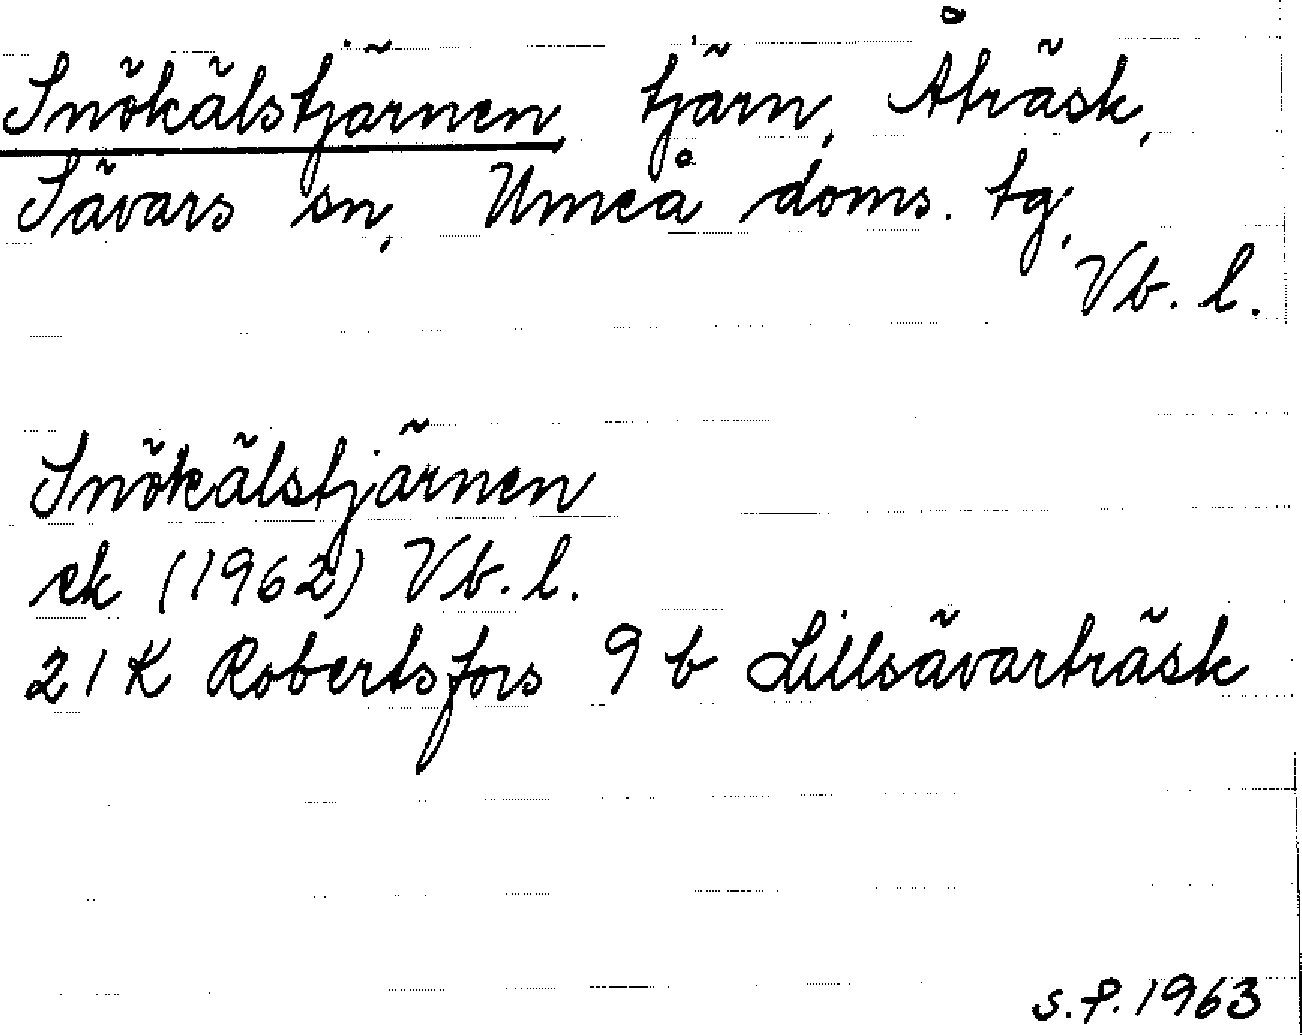 Snökälstjärnen, tjärn, Åträsk,
Sävars sn, Umeå doms. tg,
Vb. l.
Snökälstjärnen
ek (1962) Vb. l.
21K Robertsfors 9 b Lillsävarträsk
s.f. 1963